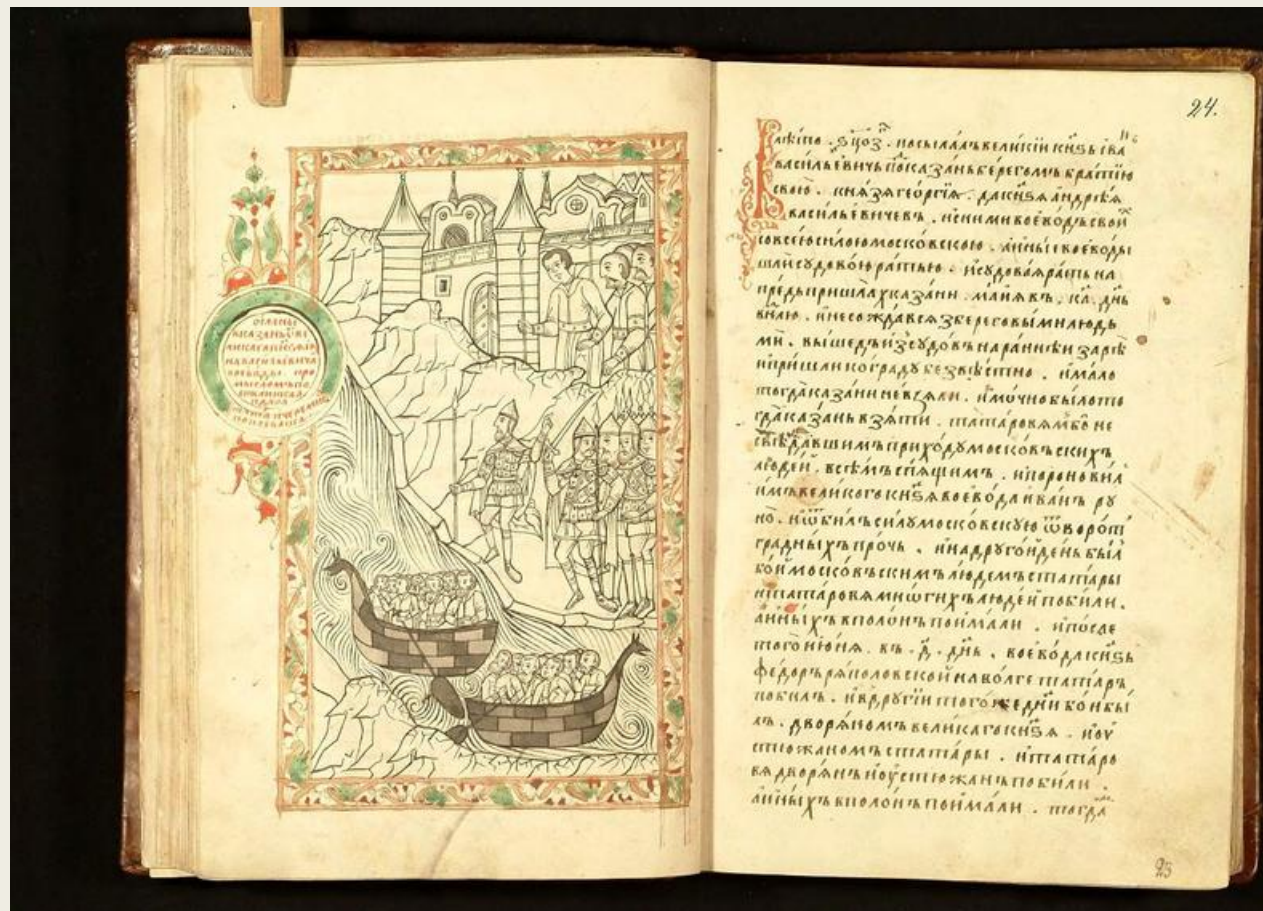 24.
в лѣто . ҂ѕц҃оз . посылалъ великїи кнѕь їва
васильевичь по казань берегомъ братїю
свою . князя геѡргїя . да кнѕѧ андрѣя
васильевичевъ . и с ними воеводъ свои
со всею силою московскою . а ины(е) воеводы
шли судовою ратью . и судовая рать на
предь пришла х казани . маия въ . к҃а . днь
в нлю . и несождався з береговыми людь
ми . вышедъ из судовъ на раннѣи зарѣ
и пришли ко граду безвѣстно . и мало
тогда казани не взяли . и мочно было то
гда казань взяти . татаровям бо не
свѣдавшимъ приходу московъскихъ
людеи . всѣмъ спящимъ . и поровил
имъ великого кнѕѧ воевода иванъ ру
но . и ѿбилъ силу московскую ѿ ворот
градныхъ прочь . и на другои день был
бои московъскимъ людемъ с татары
и татаровя многихъ людеи побили .
а иныхъ в полонъ поимали . и после
того июня . въ . д҃ . днь . воевода кнѕь
федоръ ряполовскои на волге татаръ
побилъ . и в другии того же дни бои бы
лъ . дворяномъ великаго кнѕѧ . и оу
стюжаномъ с татары . и татаро
вя дворянъ и оустюжанъ побили .
а иныхъ в полонъ поимали . тогда
23